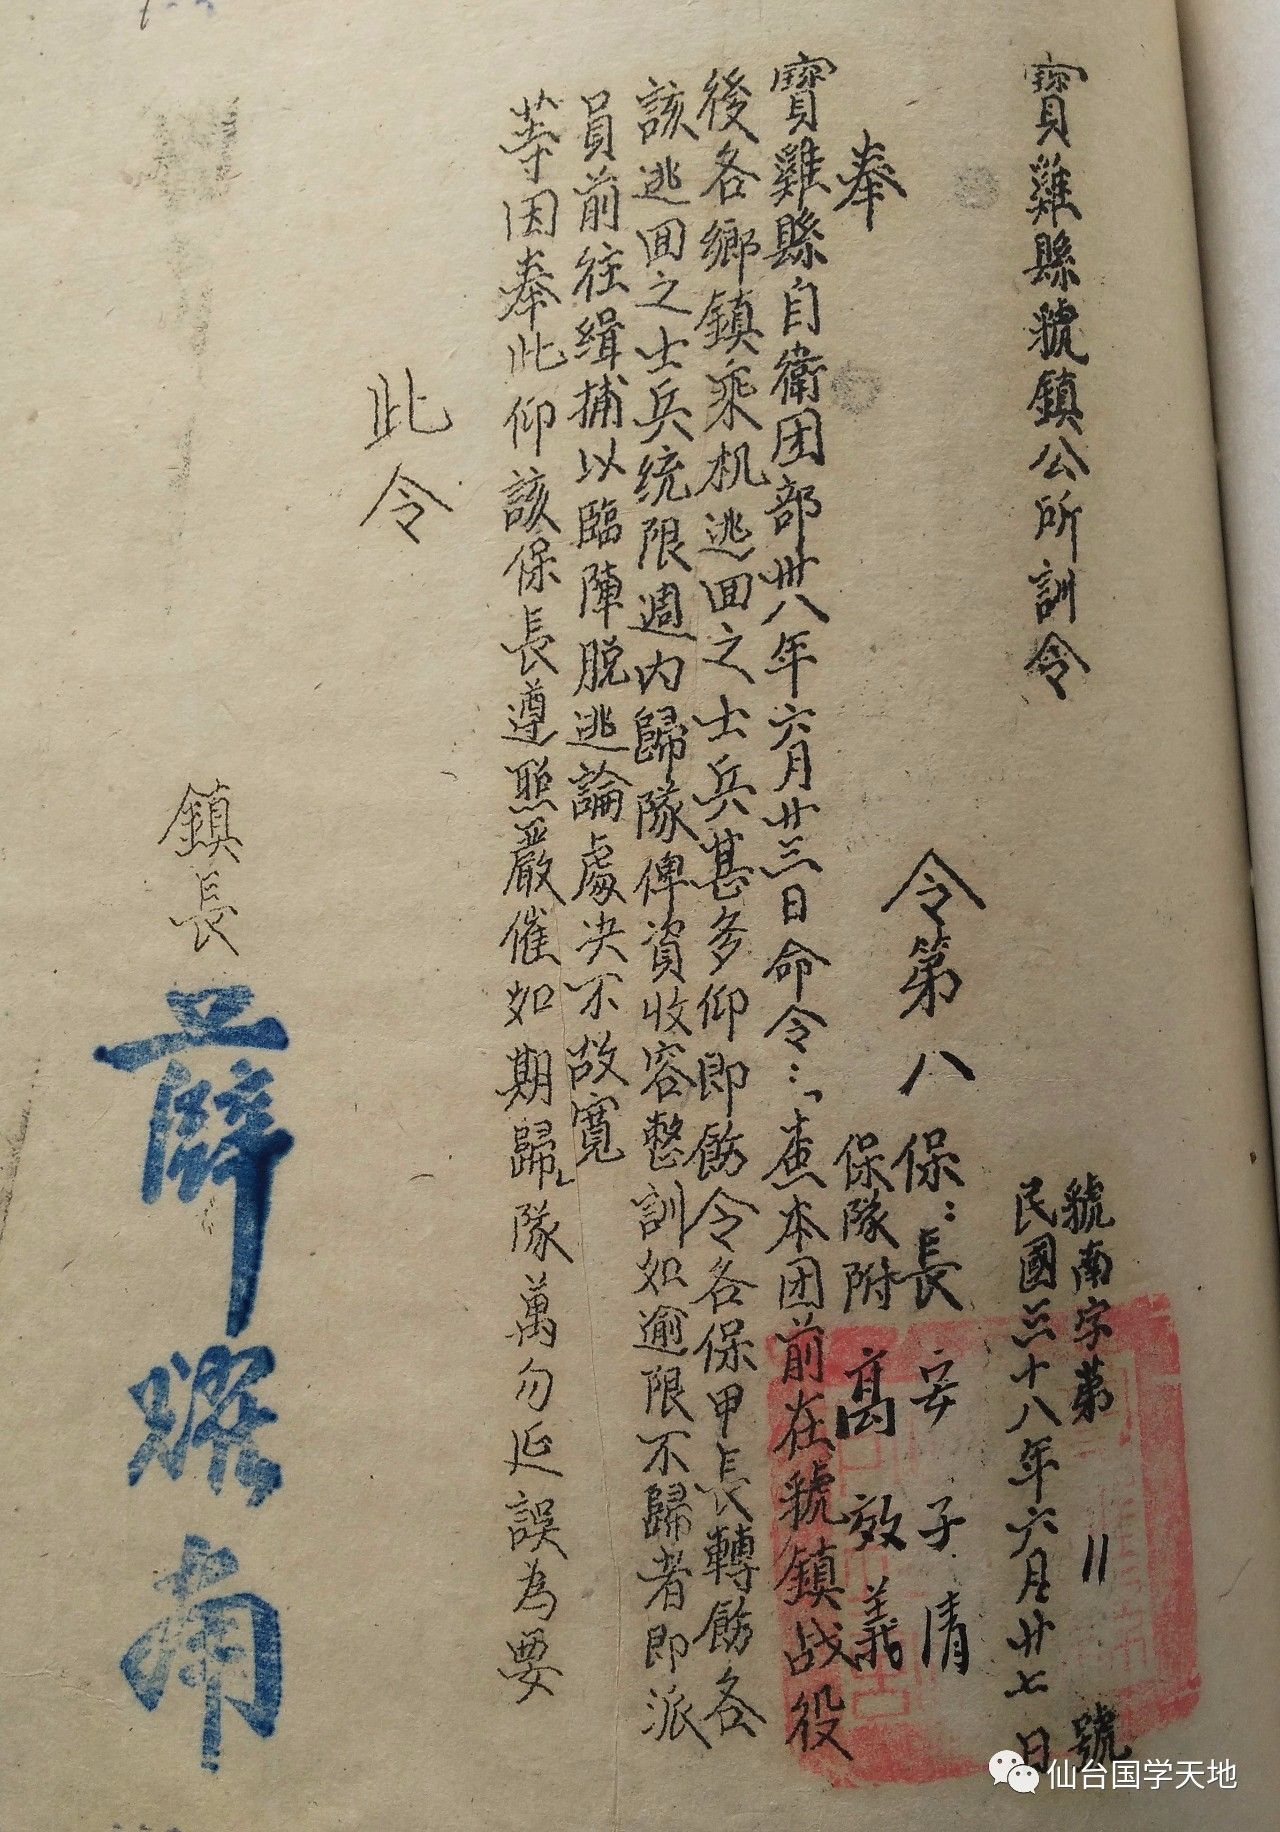 寶雞縣虢鎮公所訓令
虢南字第 11 號
民國三十八年六月廿七日
令第八保：長 安子清
保隊附 高效義
奉
寶雞縣自衛团部卅八年六月廿三日命令：「查本团前在虢鎮战役
後各鄉鎮乘机逃回之士兵甚多仰即飭令各保甲長轉飭各
該逃回之士兵统限週内歸隊俾資收容整訓如逾限不歸者即派
員前往缉捕以臨陣脱逃論處决不故寬」
等因奉此仰該保長遵照嚴催如期歸隊萬勿延誤為要
此令
鎮長 薛耀南
仙台国学天地